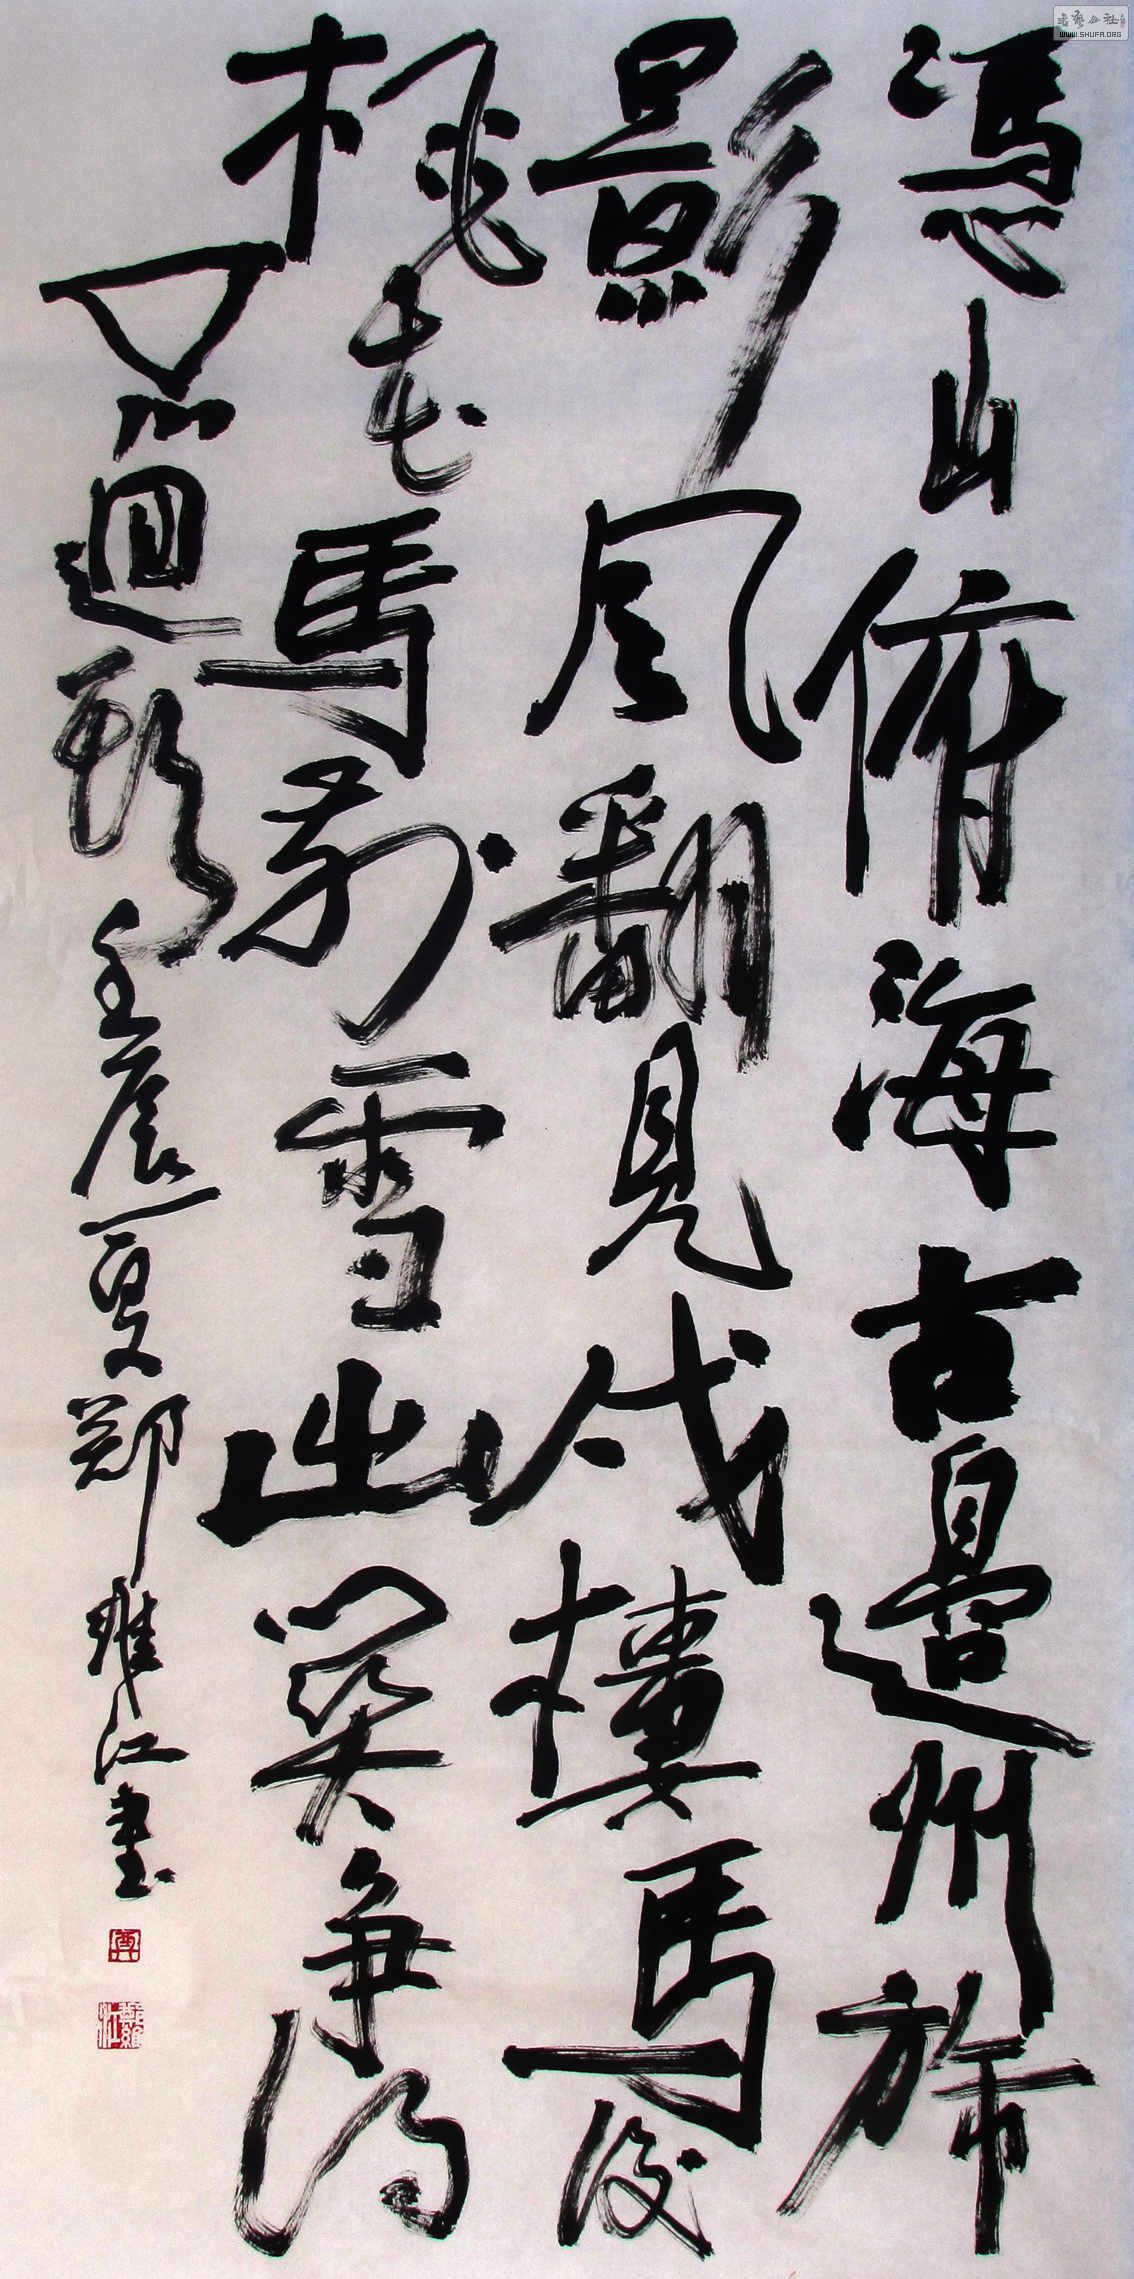 憑山俯海古邊州旆
影風翻見戍樓馬後
桃花馬前雪出關爭得
不迴頭 壬辰夏鄭維江書
鄭維江
WWW.SHUFA.ORG